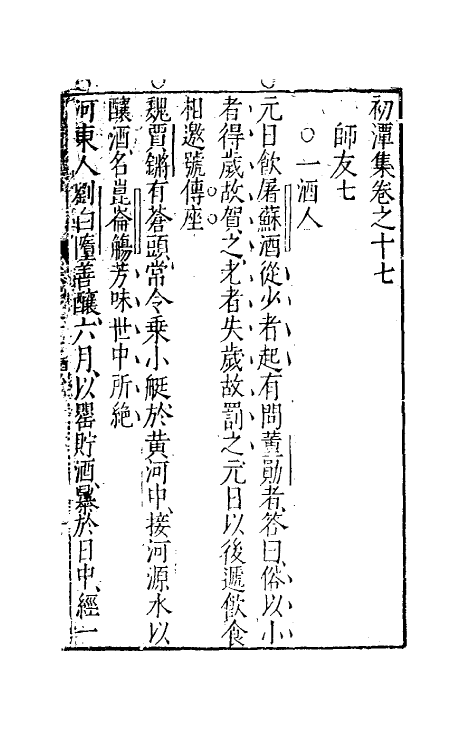 初潭集卷之十七
師友七
○一酒人
元日飲屠蘇酒從少者起有問董勛者答曰俗以小
者得歲故賀之老者失歲故罰之元日以後遞飲食
相邀號傳座
魏賈鏘有蒼頭常令乗小艇於黄河中接河源水以
釀酒名崑崙觴芳味世中所絶
河東人劉白墮善釀六月以罌貯酒暴於日中經一